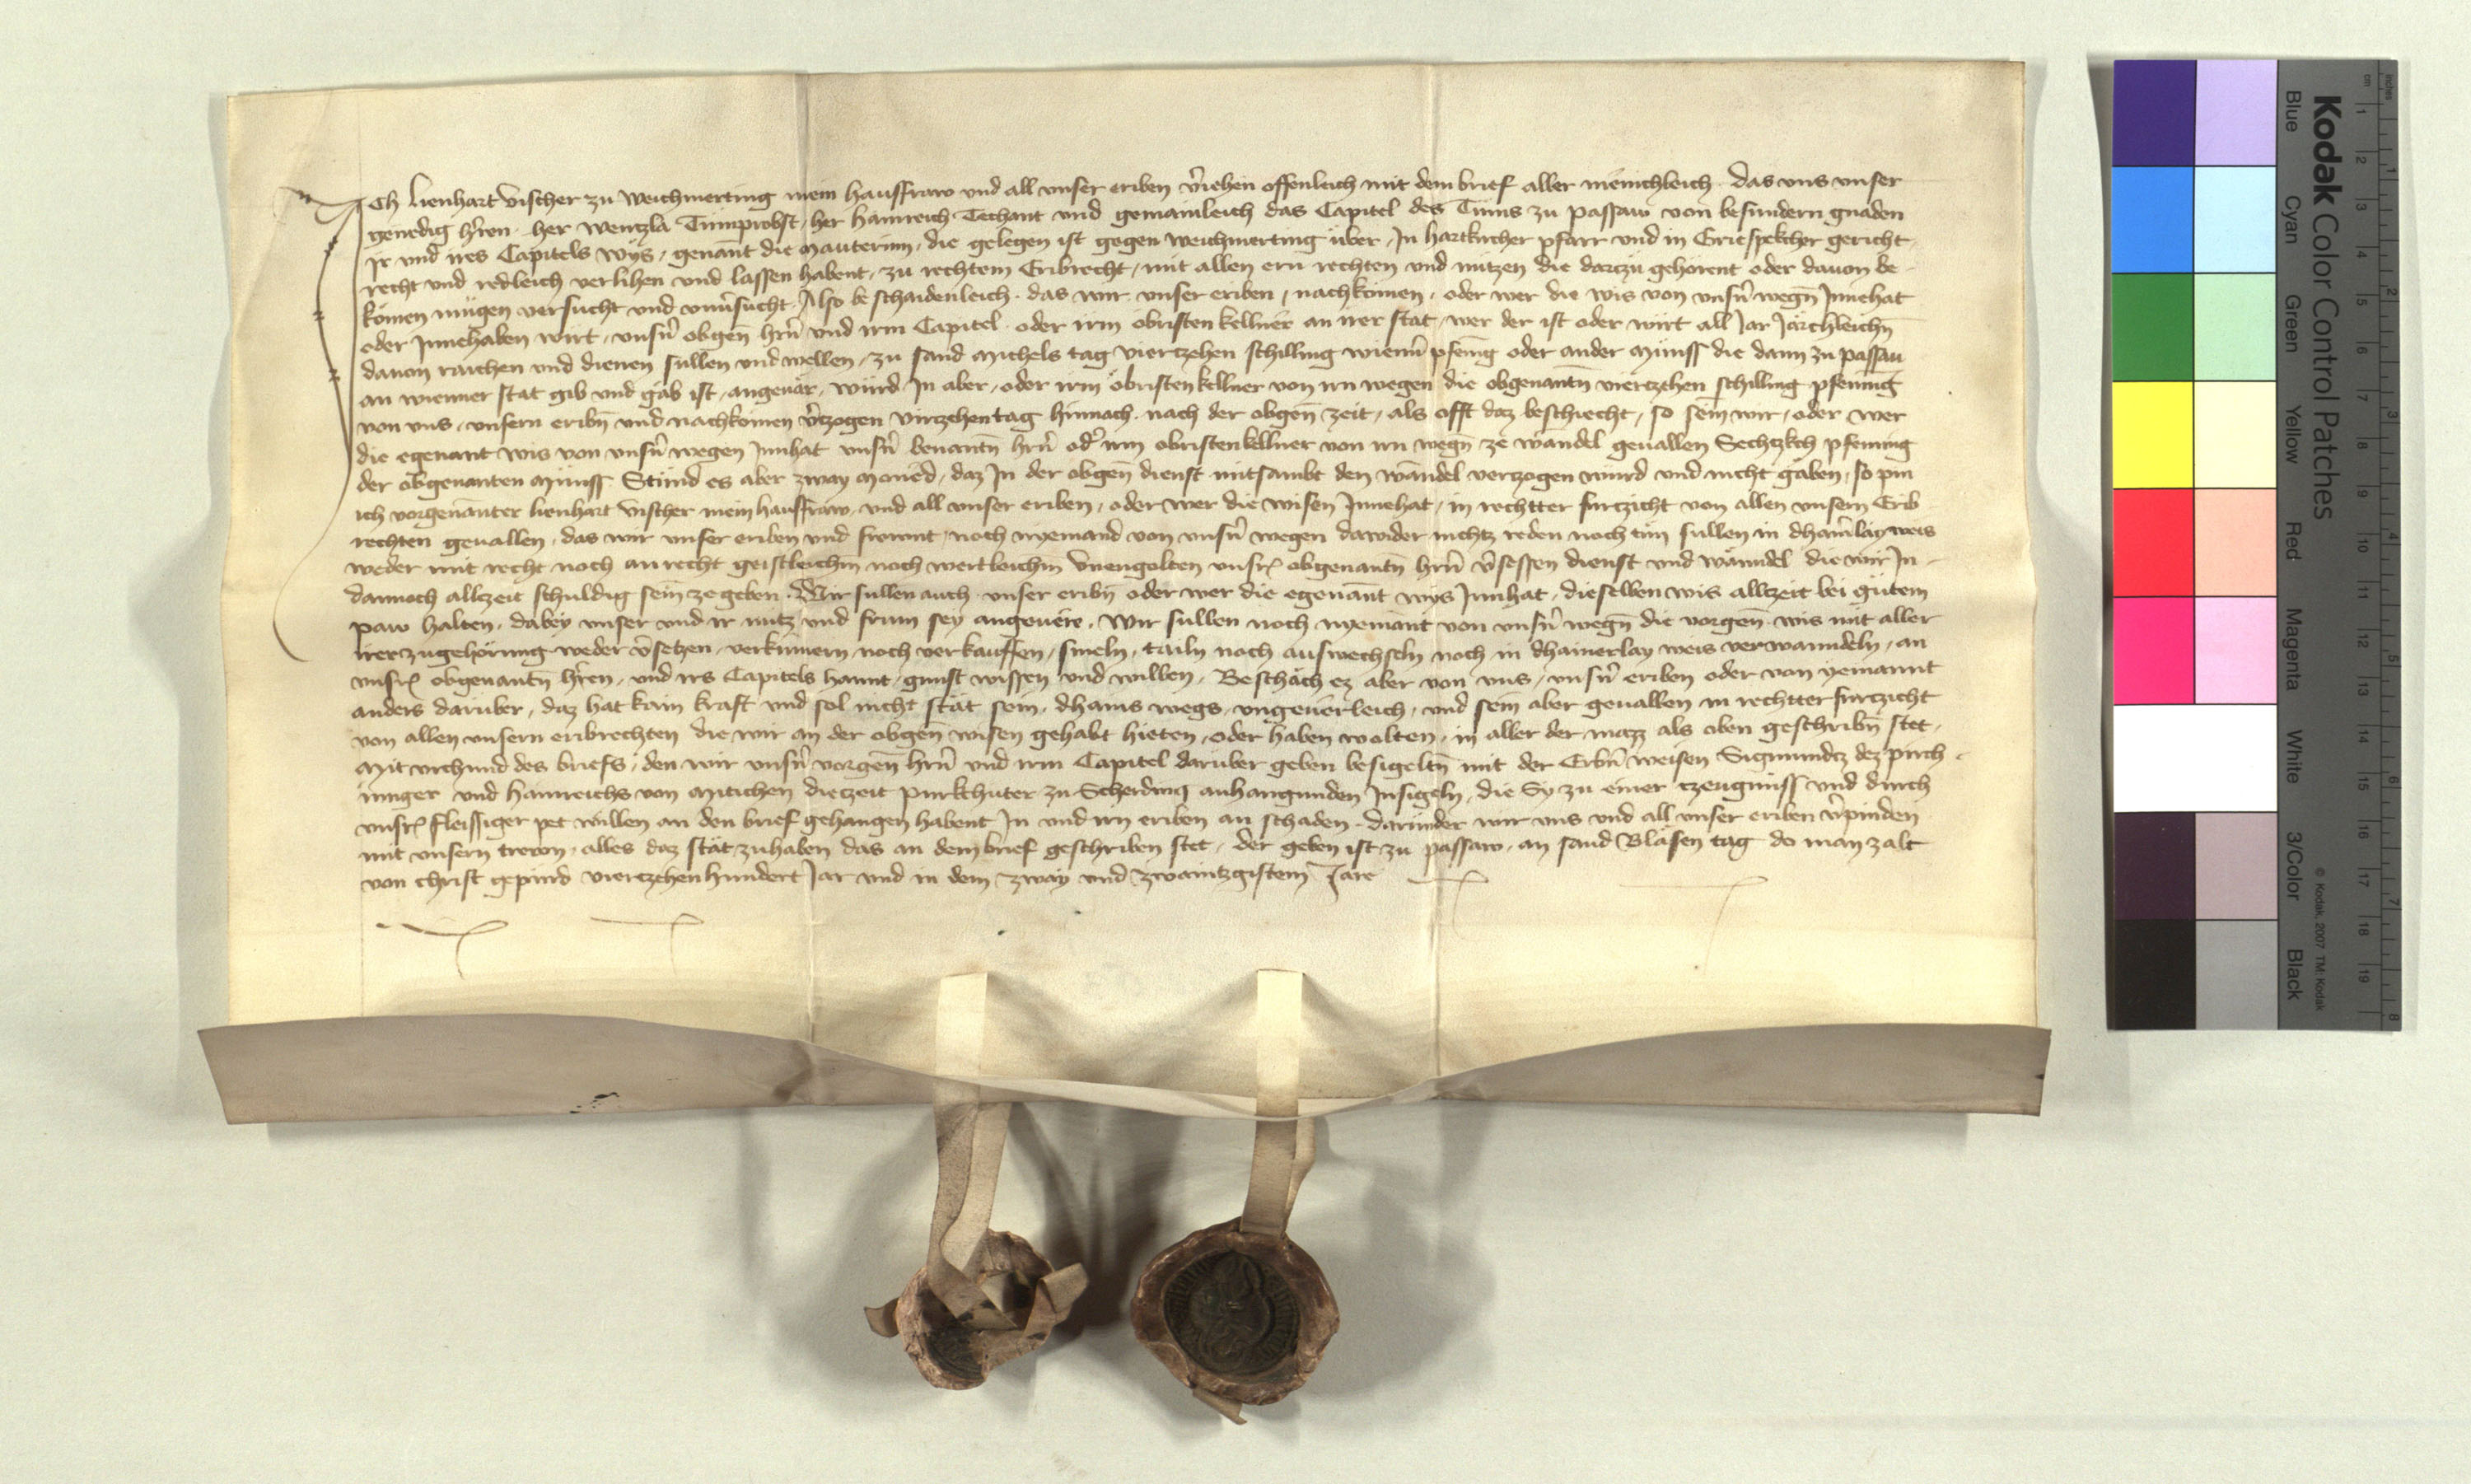 Ich Lienhart Vischer zu Weichmerting mein hausfraw und all unser eriben v̄iehen offenleich mit dem brief aller mēnichleich das uns unser
genedig hˀren her Wentzla Tumprobst her Hainreich Techant und gemainleich das Capitel des Tůms zu passaw von besundern gnaden
Ir und irs Capitels wys genan̄t die Mauterinn die gelegen ist gegen Weichmerting über In Hartkircher pfarr und in Griespekcher gericht
recht und redleich verlihen und lassen habent zu rechtem Eribrecht mit allen ern rechten und nützen die darczü gehörent oder dauon be-
kömen mügen versücht und unv̄sücht Also beschaidenleich das wir unser eriben nachkömen oder wer die wis von unsˀn wegn̄ Innehat
oder Innehaben wirt unsˀn obgen̄ hˀrn und irm Capitel oder irm obristen kellner an irer stat wer der ist oder wirt all Jar Järchleichn̄
dauon raichen und dienen sullen und wellen zu sand Michels tag viertzehen schilling wienn̄ pfenīg oder ander Münss die dann zu passau
an wienner stat gib und gäb ist angeuär würd In aber oder irm öbristen kellner von irn wegen die obgenantn̄ viertzehen schilling pfenning
von uns unsern eribn̄ und nachkömen v̄tzogen virzehen tag hinnach nach der obgen̄ zeit als offt daz beschiecht so sein wir oder wer
die egenant wis von unsˀn wegen Innhat unsˀn benantn̄ hˀrn odˀ irm obristen kellner von irn wegn̄ ze wandel geuallen Sechtzkch pfenning
der obgenanten Münss Stünd es aber zway Moned daz In der obgen̄ dienst mitsambt den wändel verzogen würd und nicht gäben so pin
ich vorgenanter Lienhart Vischer mein hausfraw und all unser eriben oder wer die wisen Innehat in rechtter furtzicht von allen unsern Erib
rechten geuallen das wir unser eriben und frewnt noch nyemand von unsˀn wegen dawider nichtz reden noch tün sullen in dhainˀlay weis
weder mit recht noch an recht geistleichm noch werltleichm Unengolten unsˀr obgenantn̄ hˀrn v̄sessen dienst und wänndel die wir In
dannoch allczeit schuldig sein ze geben Wir sullen auch unser eribn̄ oder wer die egenant wys Innhat dieselben wis allczeit bei gütem
paw halten dabey unser und ir nutz und frum sey angeuëre Wir sullen noch nyemant von unsˀn wegn̄ die vorgen̄ wis mit aller
irer zugehörung weder v̄setzen verkumern noch verkauffen smeln tailn noch auswechseln noch in dhainerlay weis verwanndeln an
unsˀr obgenantn̄ hˀren und irs Capitels hannt gunst wissen und willen Beschäch ez aber von uns unsˀn eriben oder von yemannt
anders darüber daz hat kain kraft und sol nicht stät sein dhains wegs ungeuerleich und sein aber geuallen in rechtter furczicht
von allen unsern eribrechten die wir an der obgen̄ wisen gehabt hieten oder haben wolten in aller der mazz als oben geschribn̄ stet
Mit urchund des briefs den wir unsˀn vorgen̄ hˀrn und irm Capitel darüber geben besigeltn̄ mit der Erbˀn weisen Sigmundtz dez pirch-
inger und Hainreichs von Mitichen diezeit purkchuter zu Scherding anhangunden Insigeln die Sy zu einer tzeugnüss und durch
unsˀr fleissiger pet willen an den brief gehangen habent In und irn eriben an schaden darunder wir uns und all unser eriben v̄pinden
mit unsern trewn alles daz stät zuhaben das an dem brief geschriben stet der geben ist zu passaw an sand Bläsen tag do man zalt
von christ gepürd viertzehenhundert Jar und in dem zway und zwaintzgistem Jare
Kodak Color Control Patches
© Kodak, 2007 TM: Kodak
Blue Cyan Green Yellow Red Magenta White 3/Color Black
cm 1 2 3 4 5 6 7 8 9 10 11 12 13 14 15 16 17 18 19
inches 1 2 3 4 5 6 7 8